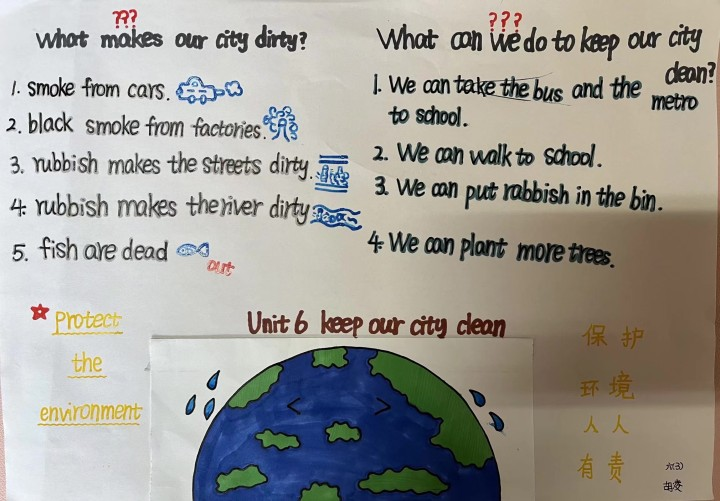 ???
What makes our city dirty?
1. smoke from cars.
2. black smoke from factories.
3. rubbish makes the streets dirty.
4. rubbish makes the river dirty
5. fish are dead
out
???
What can we do to keep our city
clean?
1. We can take the bus and the metro
to school.
2. We can walk to school.
3. We can put rabbish in the bin.
4. We can plant more trees.
Protect
the
environment
Unit 6 keep our city clean
保护
环境
人人
有责
六(3)